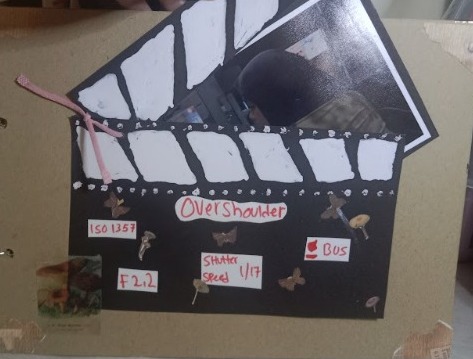 Overshoulder
ISO 1357
BUS
F2.2
Shutter
Speed 1/17